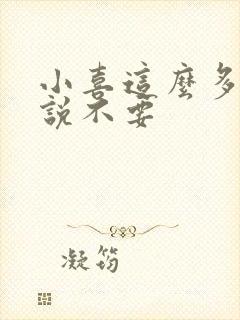 小喜這麼多
說不要
凝筠